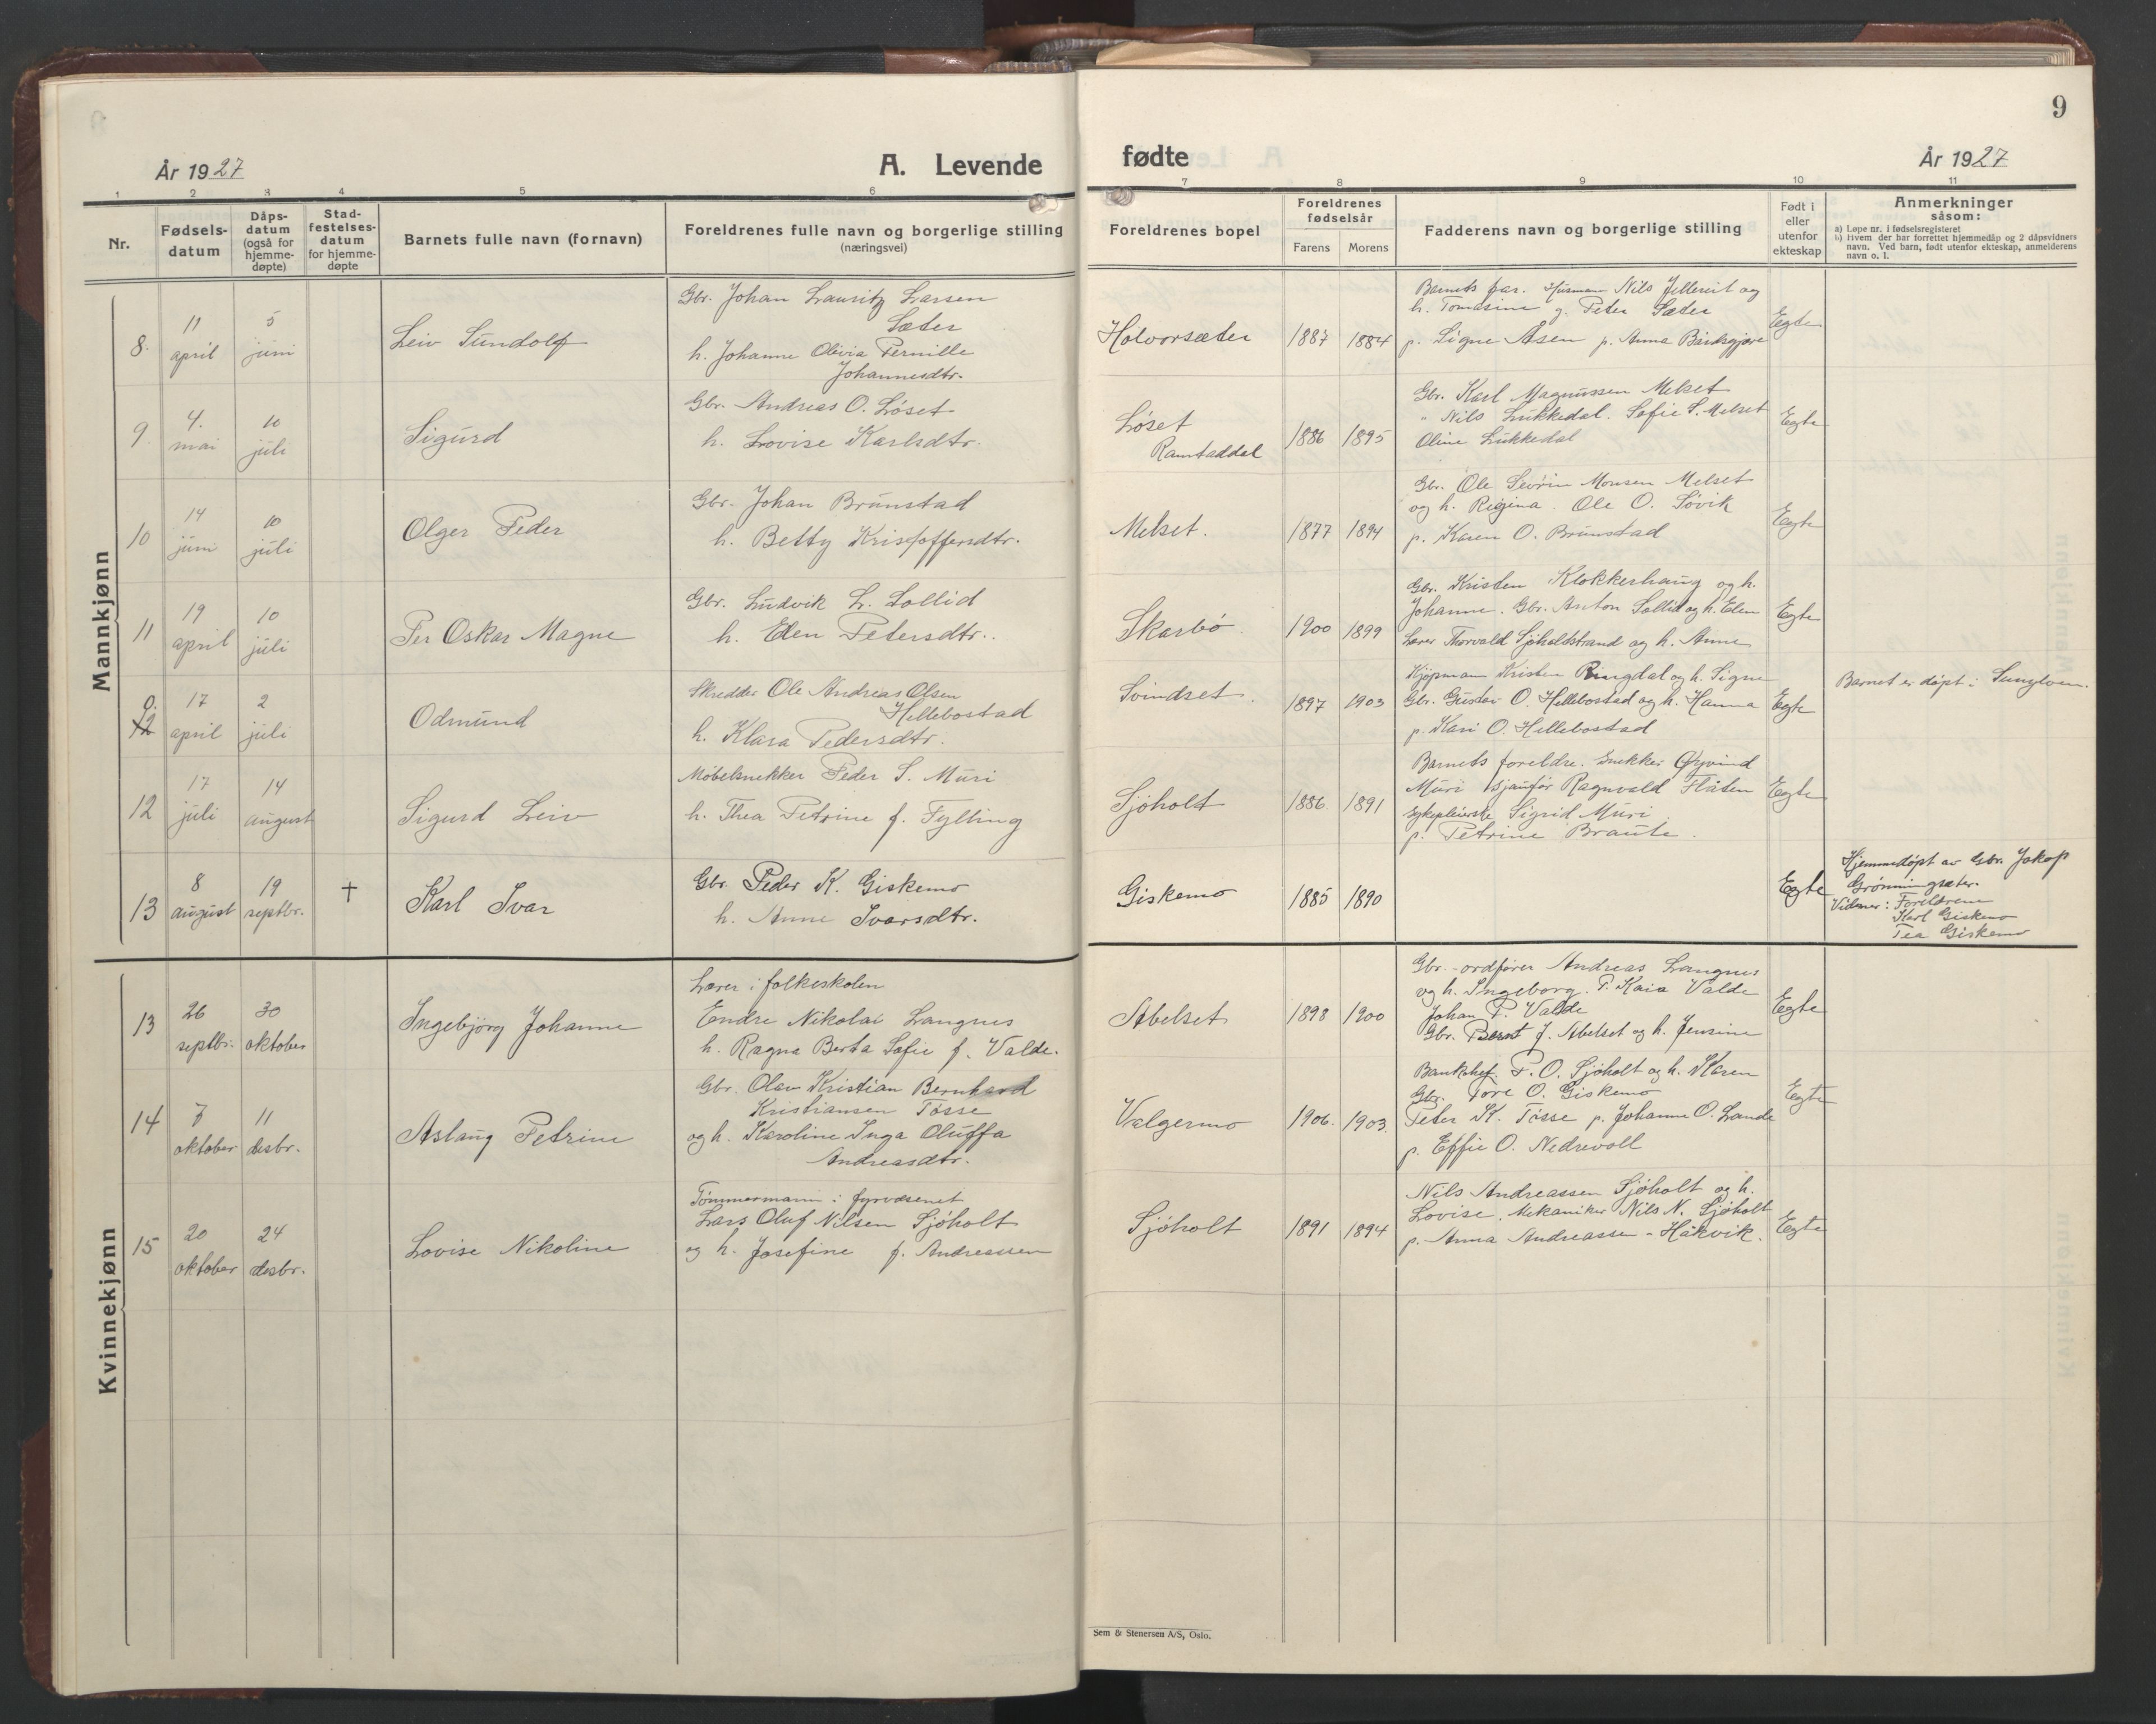 9
År 1927
A. Levende
fødte
År 1927
1 2 3 4 5 6 7 8 9 10 11
Nr.
Fødsels-
datum
Dåps-
datum
(også for
hjemme-
døpte)
Stad-
festelses-
datum
for hjemme-
døpte
Barnets fulle navn (fornavn)
Foreldrenes fulle navn og borgerlige stilling
(næringsvei)
Foreldrenes bopel
Foreldrenes
fødselsår
Farens
Morens
Fadderens navn og borgerlige stilling
Født i
eller
utenfor
ekteskap
Anmerkninger
såsom:
a) Løpe nr. i fødselsregisteret
b) Hvem der har forrettet hjemmedåp og 2 dåpsvidners
navn. Ved barn, født utenfor ekteskap, anmelderens
navn o. l.
Mannkjønn
8.
11
april
5
juni
Leiv Sundolf
Gbr. Johan Lauritz Larsen
Sæter
h. Johanne Olivia Pernille
Johannesdtr.
Holvorsæter
1887
1884
Barnets far. Husmann Nils Jellereit og
h. Tomasine g. Peter Sæter
p. Signe Åsen p. Anna
Egte
9.
4.
mai
10
juli
Sigurd
Gbr. Andreas O. Løset
h. Lovise Karlsdtr.
Løset
Ramstaddal
1886
1895
Gbr. Karl Magnussen Melset
" Nils Lukkedal. Sofie S. Melset
Oline Lukkedal
Egte
10
14
juni
10
juli
Olger Peder
Gbr. Johan Brunstad
h. Betty Kristoffersdtr.
Melset.
1877
1894
Gbr. Ole Sevrin Monsen Melset
og h. Regina. Ole O. Søvik
p. Karen O. Brunstad
Egte
11
19
april
10
juli
Per Oskar Magne
Gbr. Ludvik L. Sollid
h. Elen Petersdtr..
Skarbø.
1900
1899
Gbr. Kristen Klokkerhaug og h.
Johanne. Gbr. Anton Sollid og h. Elen
Lærer Thorvald Sjøholtstrand og h. Anne
Egte
0.
12
17
april
2
juli
Odmund
Skredder Ole Andreas Olsen
Hellebostad
h. Klara Pedersdtr.
Svindset.
1897
1903
Kjøpmann Kristen Ringdal og h. Signe
Gbr. Gustav O. Hellebostad og h. Hanna
p. Kari O. Hellebostad
Egte
Barnet er døpt i Sunylven.
12
17
juli
14
august
Sigurd Leiv
Møbelsnekker Peder S. Muri
h. Thea Petrine f. Fylling
Sjøholt
1886.
1891
Barnets foreldre. Snekker Øyvind
Muri sjaufør Ragnvald Flåten
sykepleierske Sigrid Muri
p. Petrine Braute.
Egte
13
8
august
19
septbr.
†
Karl Ivar
Gbr. Peder K. Giskemo
h. Anne Ivarsdtr.
Giskemo
1885
1890
Egte
Hjemmedøpt av Gbr. Jakop
Grønningsæter.
Vidner: Foreldrene
Karl Giskemo
Tea Giskemo
Kvinnekjønn
13
26
septbr.
30
oktober
Ingebjørg Johanne
Lærer i folkeskolen
Endre Nikolai Langnes
h. Ragna Berta Sofie f. Valde.
Abelset
1898
1900
Gbr.-ordfører Andreas Langnes
og h. Ingeborg. P. Kaia Valde
Johan P. Valde
Gbr. Bernt J. Abelset og h. Jensine
Egte
14
7
oktober
11
desbr.
Aslaug Petrine
Gbr. Olav Kristian Bernhard
Kristiansen Tøsse
og h. Karoline Inga Oluffa
Andreasdtr.
Valgermo
1906.
1903.
Bankchef. P. O. Sjøholt og h. Karen
Gbr. Tore O. Giskemo
Peter K. Tøsse p. Johanne O. Lande
p. Effie O. Nedrevoll
Egte
15
20
oktober
24
desbr.
Lovise Nikoline
Tømmermann i fyrvæsenet
Lars Oluf Nilsen Sjøholt
og h. Josefine f. Andreassen
Sjøholt
1891
1894
Nils Andreassen Sjøholt og h.
Lovise. Mekaniker Nils N. Sjøholt
p. Anna Andreassen - Håkvik.
Egte
Sem & Stenersen A/S, Oslo.